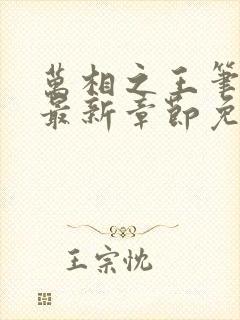 萬相之王筆
最新章節免
王宗忱